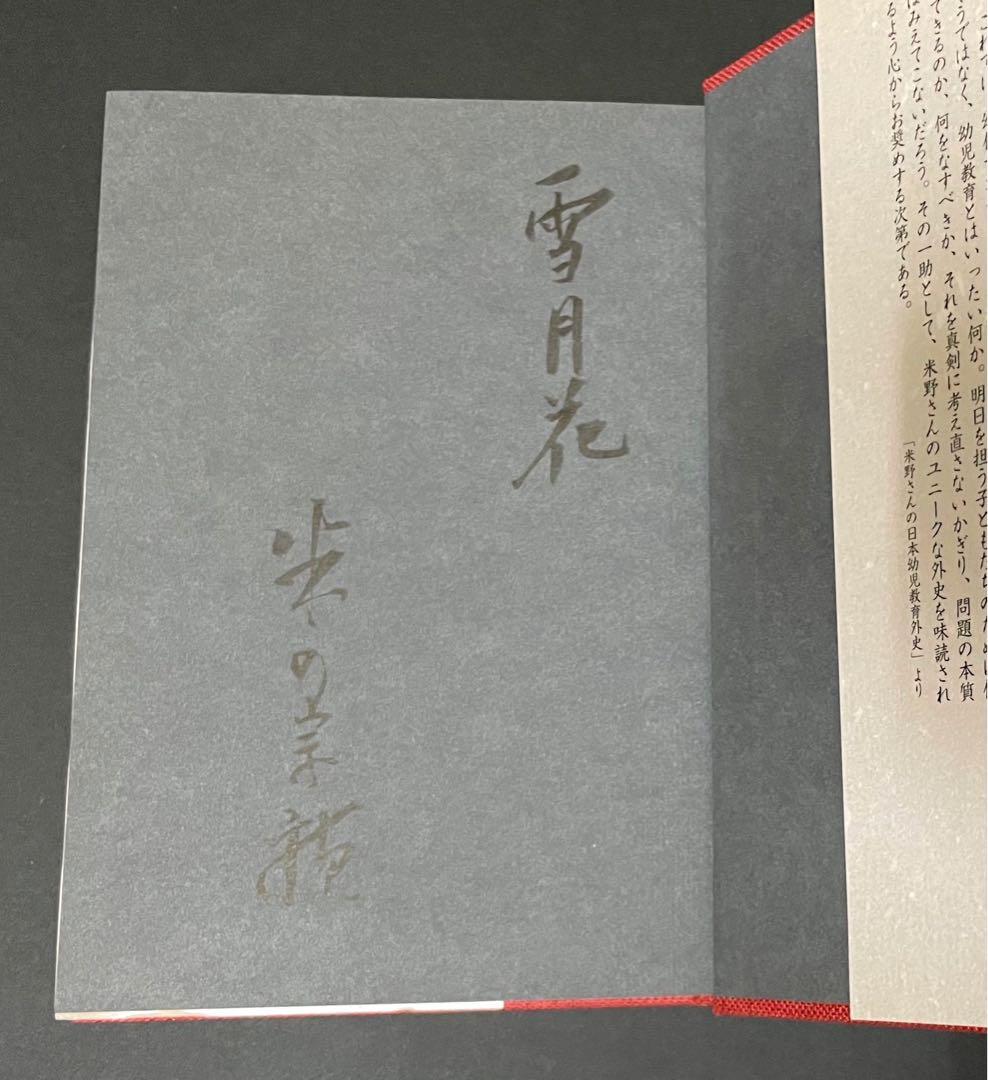 うではなく、幼児教育とはいったい何か。明日を担う子どもたちのために
できるのか、何をなすべきか、それを真剣に考え直さないかぎり、問題の本質
はみえてこないだろう。その一助として、米野さんのユニークな外史を味読され
るよう心からお奨めする次第である。
「米野さんの日本幼児教育外史」より
雪月花